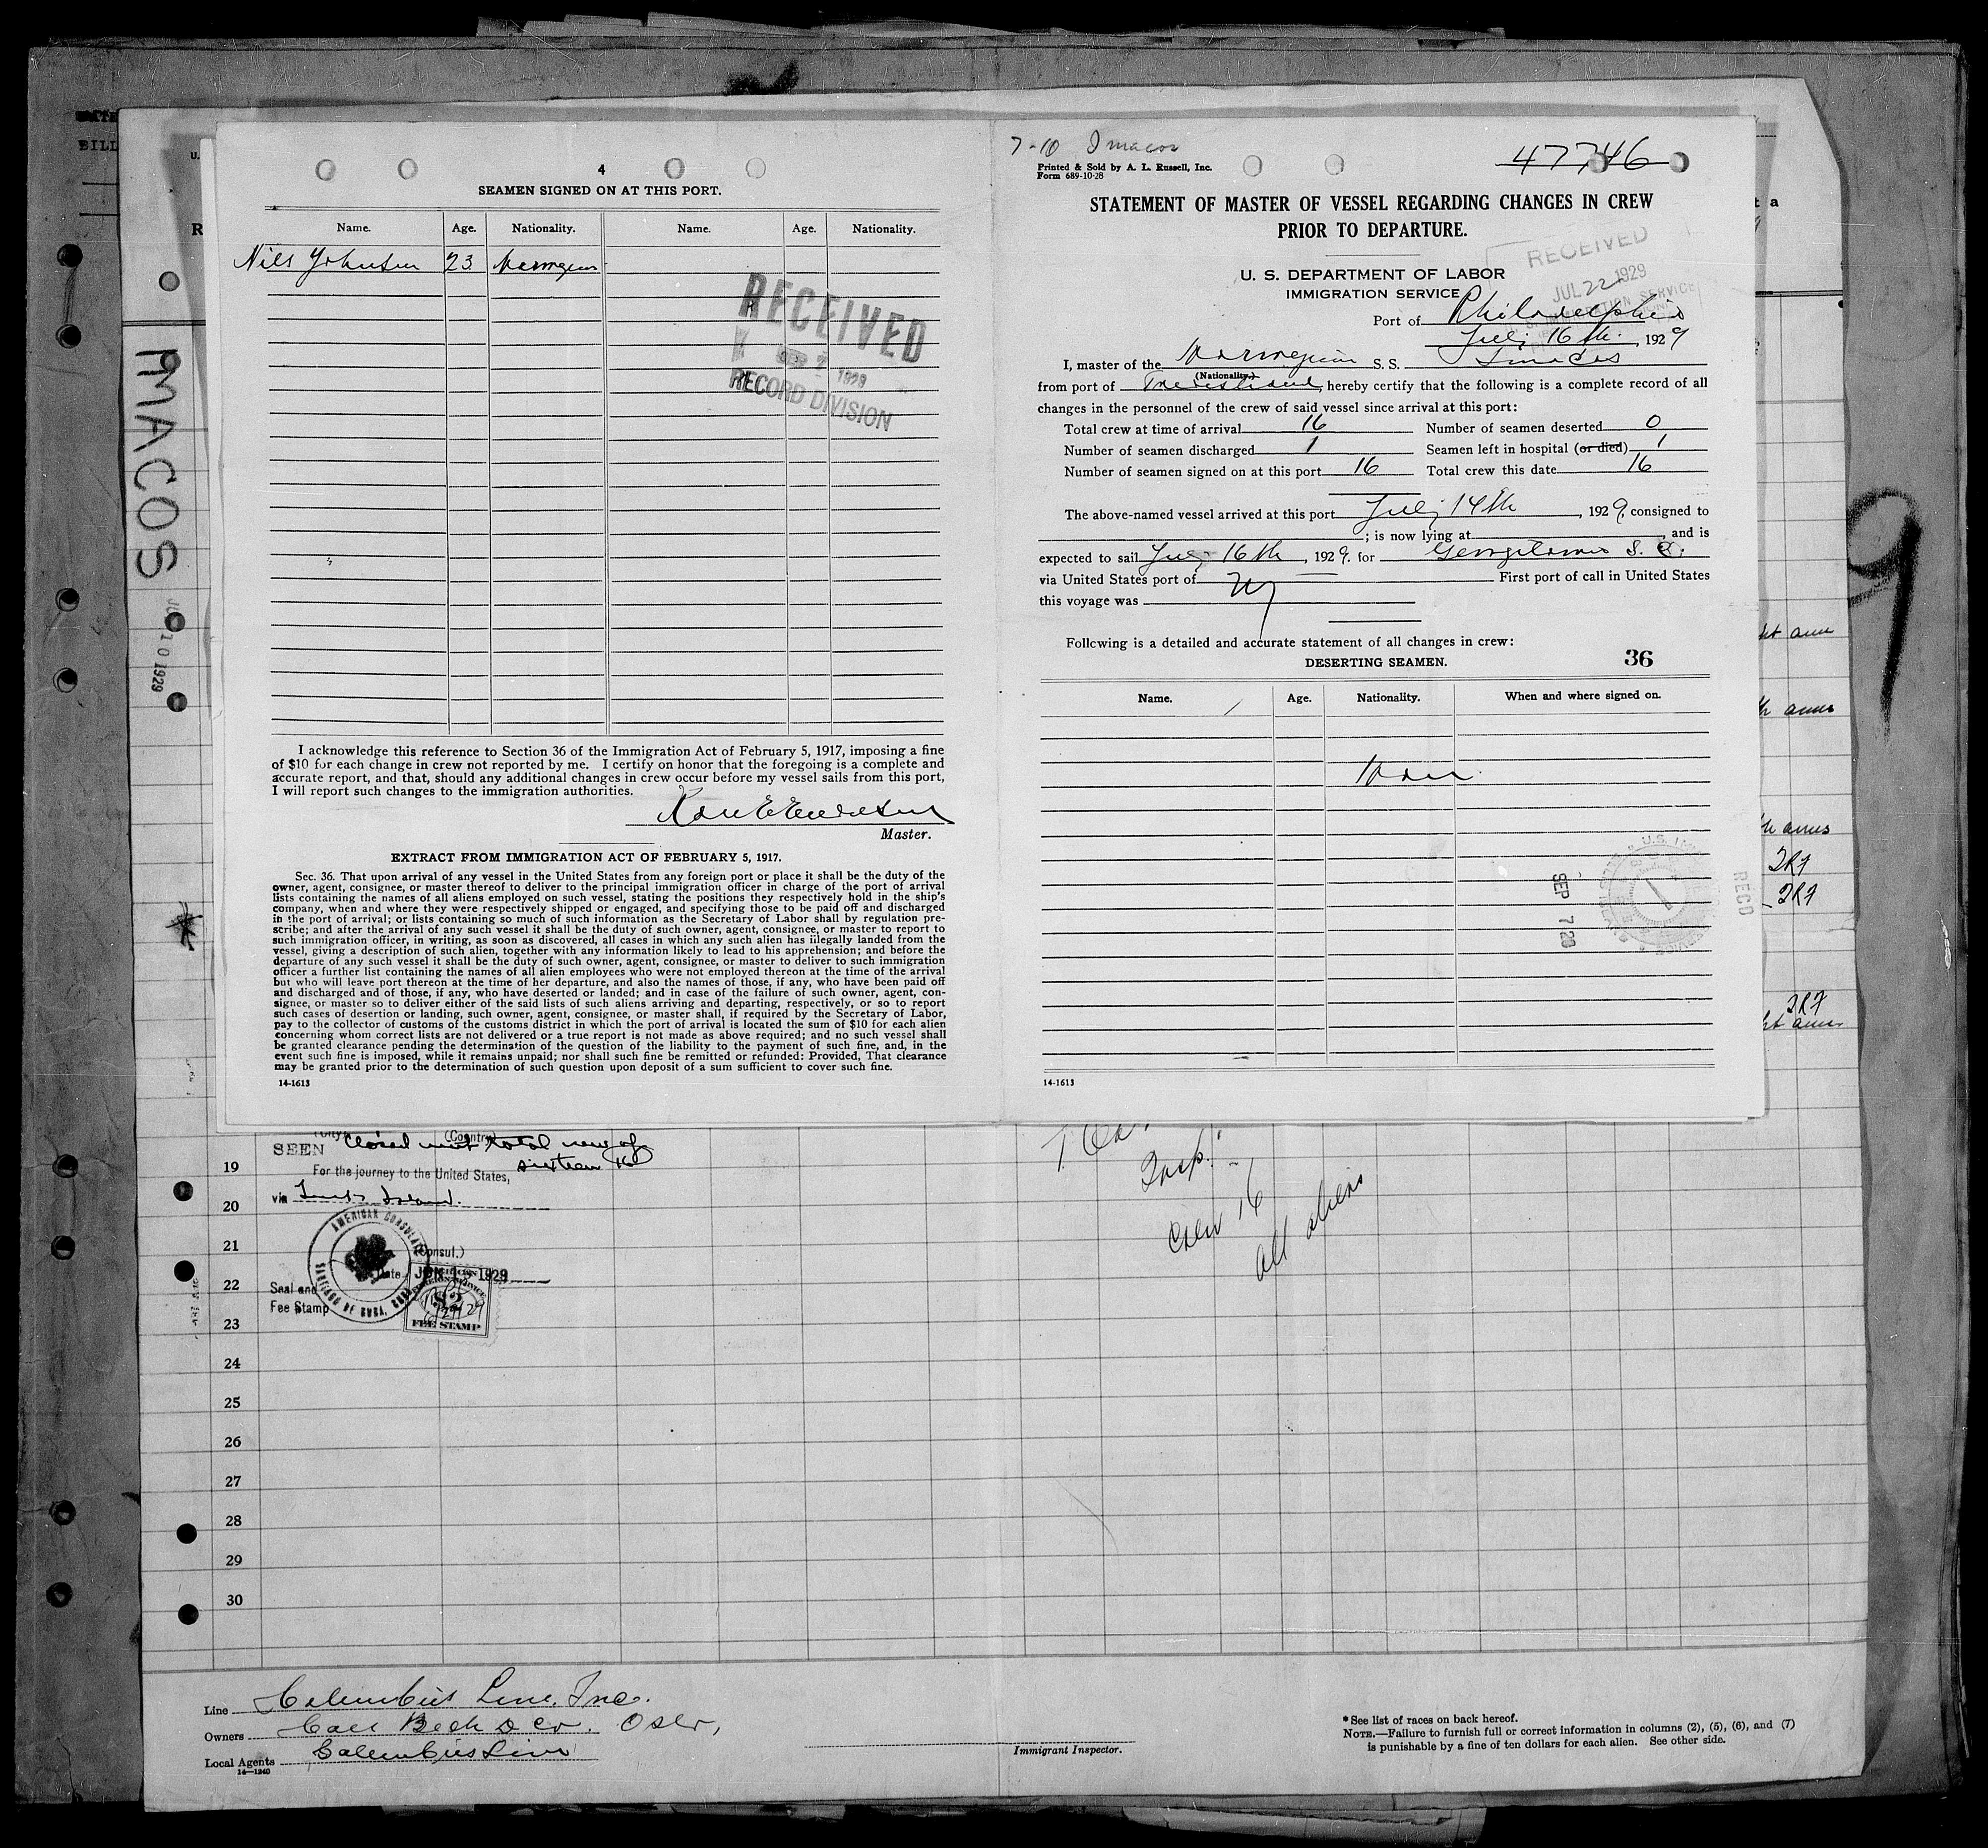 BILL
U.
R
IMACOS
10 1929
4
SEAMEN SIGNED ON AT THIS PORT.
Name. Age. Nationality. Name. Age. Nationality.
Nils Johnsen 23 Norwegian
RECEIVED
2 1929
RECORD DIVISION
I acknowledge this reference to Section 36 of the Immigration Act of February 5, 1917, imposing a fine
of $10 for each change in crew not reported by me. I certify on honor that the foregoing is a complete and
accurate report, and that, should any additional changes in crew occur before my vessel sails from this port,
I will report such changes to the immigration authorities.
Master.
EXTRACT FROM IMMIGRATION ACT OF FEBRUARY 5, 1917.
Sec. 36. That upon arrival of any vessel in the United States from any foreign port or place it shall be the duty of the
owner, agent, consignee, or master thereof to deliver to the principal immigration officer in charge of the port of arrival
lists containing the names of all aliens employed on such vessel, stating the positions they respectively hold in the ship's
company, when and where they were respectively shipped or engaged, and specifying those to be paid off and discharged
in the port of arrival; or lists containing so much of such information as the Secretary of Labor shall by regulation pre-
scribe; and after the arrival of any such vessel it shall be the duty of such owner, agent, consignee, or master to report to
such immigration officer, in writing, as soon as discovered, all cases in which any such alien has illegally landed from the
vessel, giving a description of such alien, together with any information likely to lead to his apprehension; and before the
departure of any such vessel it shall be the duty of such owner, agent, consignee, or master to deliver to such immigration
officer a further list containing the names of all alien employees who were not employed thereon at the time of the arrival
but who will leave port thereon at the time of her departure, and also the names of those, if any, who have been paid off
and discharged and of those, if any, who have deserted or landed; and in case of the failure of such owner, agent, con-
signee, or master so to deliver either of the said lists of such aliens arriving and departing, respectively, or so to report
such cases of desertion or landing, such owner, agent, consignee, or master shall, if required by the Secretary of Labor,
pay to the collector of customs of the customs district in which the port of arrival is located the sum of $10 for each alien
concerning whom correct lists are not delivered or a true report is not made as above required; and no such vessel shall
be granted clearance pending the determination of the question of the liability to the payment of such fine, and, in the
event such fine is imposed, while it remains unpaid; nor shall such fine be remitted or refunded: Provided, That clearance
may be granted prior to the determination of such question upon deposit of a sum sufficient to cover such fine.
14-1613
7-10 Imacos
47746
Printed & Sold by A. L. Russell, Inc.
Form 689-10-28
STATEMENT OF MASTER OF VESSEL REGARDING CHANGES IN CREW
PRIOR TO DEPARTURE.
RECEIVED
JUL 22 1929
IMMIGRATION SERVICE
U. S. DEPARTMENT OF LABOR
IMMIGRATION SERVICE
Port of Philadelphia
July 16th, 1929
I, master of the Norwegian S. S. Imacos
(Nationality.)
from port of hereby certify that the following is a complete record of all
changes in the personnel of the crew of said vessel since arrival at this port:
Total crew at time of arrival 16 Number of seamen deserted 0
Number of seamen discharged 1 Seamen left in hospital (or died) 1
Number of seamen signed on at this port 16 Total crew this date 16
The above-named vessel arrived at this port July 14th, 1929, consigned to
; is now lying at , and is
expected to sail July 16th, 1929. for Georgetown S. C.
via United States port of First port of call in United States
this voyage was
Following is a detailed and accurate statement of all changes in crew:
DESERTING SEAMEN. 36
Name. Age. Nationality. When and where signed on.
SEP 729
RECD
14-1613
9
2R7
2R7
2R7
(Country)
SEEN Closed with total crew of
sixteen 16
For the journey to the United States,
via Turks Island.
AMERICAN CONSULATE
SANTIAGO DE CUBA, CUBA
(Consul.)
Date 1929
Seal and
Fee Stamp
$2
FEE STAMP
Insp.
Crew 16
all aliens
19
20
21
22
23
24
25
26
27
28
29
30
Line Columbus Line, Inc.
Owners Oslo,
Local Agents Columbus Line
14-1240
Immigrant Inspector.
*See list of races on back hereof.
NOTE.—Failure to furnish full or correct information in columns (2), (5), (6), and (7)
is punishable by a fine of ten dollars for each alien. See other side.